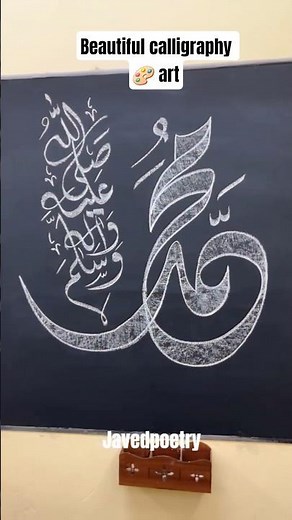 Beautiful calligraphy
🎨 art
محمد
صلى الله
عليه
وآله
وسلم
Javedpoetry